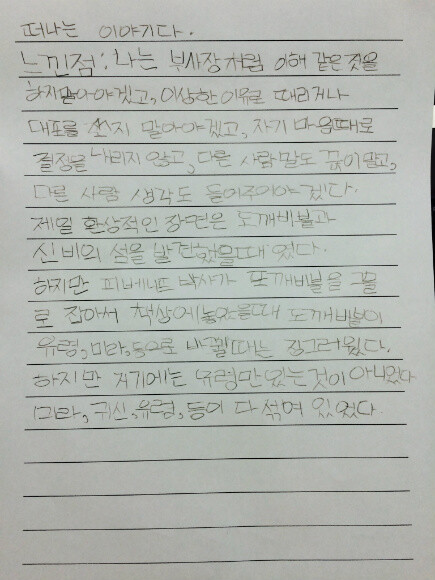 떠나는 이야기다.
느낀점: 나는 부사장처럼 이해 같은 것을
하지말아야겠고, 이상한 이유로 때리거나
대포를 쏘지 말아야겠고, 자기 마음때로
결정을 내리지 않고, 다른 사람 말도 끊이말고,
다른 사람 생각도 들어주어야겠다.
제일 환상적인 장면은 도깨비불과
신비의 섬을 발견했을때였다.
하지만 피베네드 박사가 또깨비불을 그물
로 잡아서 책상에놓았을때 도깨비불이
유령, 미라, 등으로 바뀔때는 징그러웠다.
하지만 거기에는 유령만있는것이 아니었다
미라, 귀신, 유령, 등이 다 섞여 있었다.